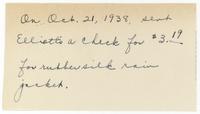 On Oct. 21, 1938, sent
Elliotts a check for $3.19
for rubber silk rain
jacket.